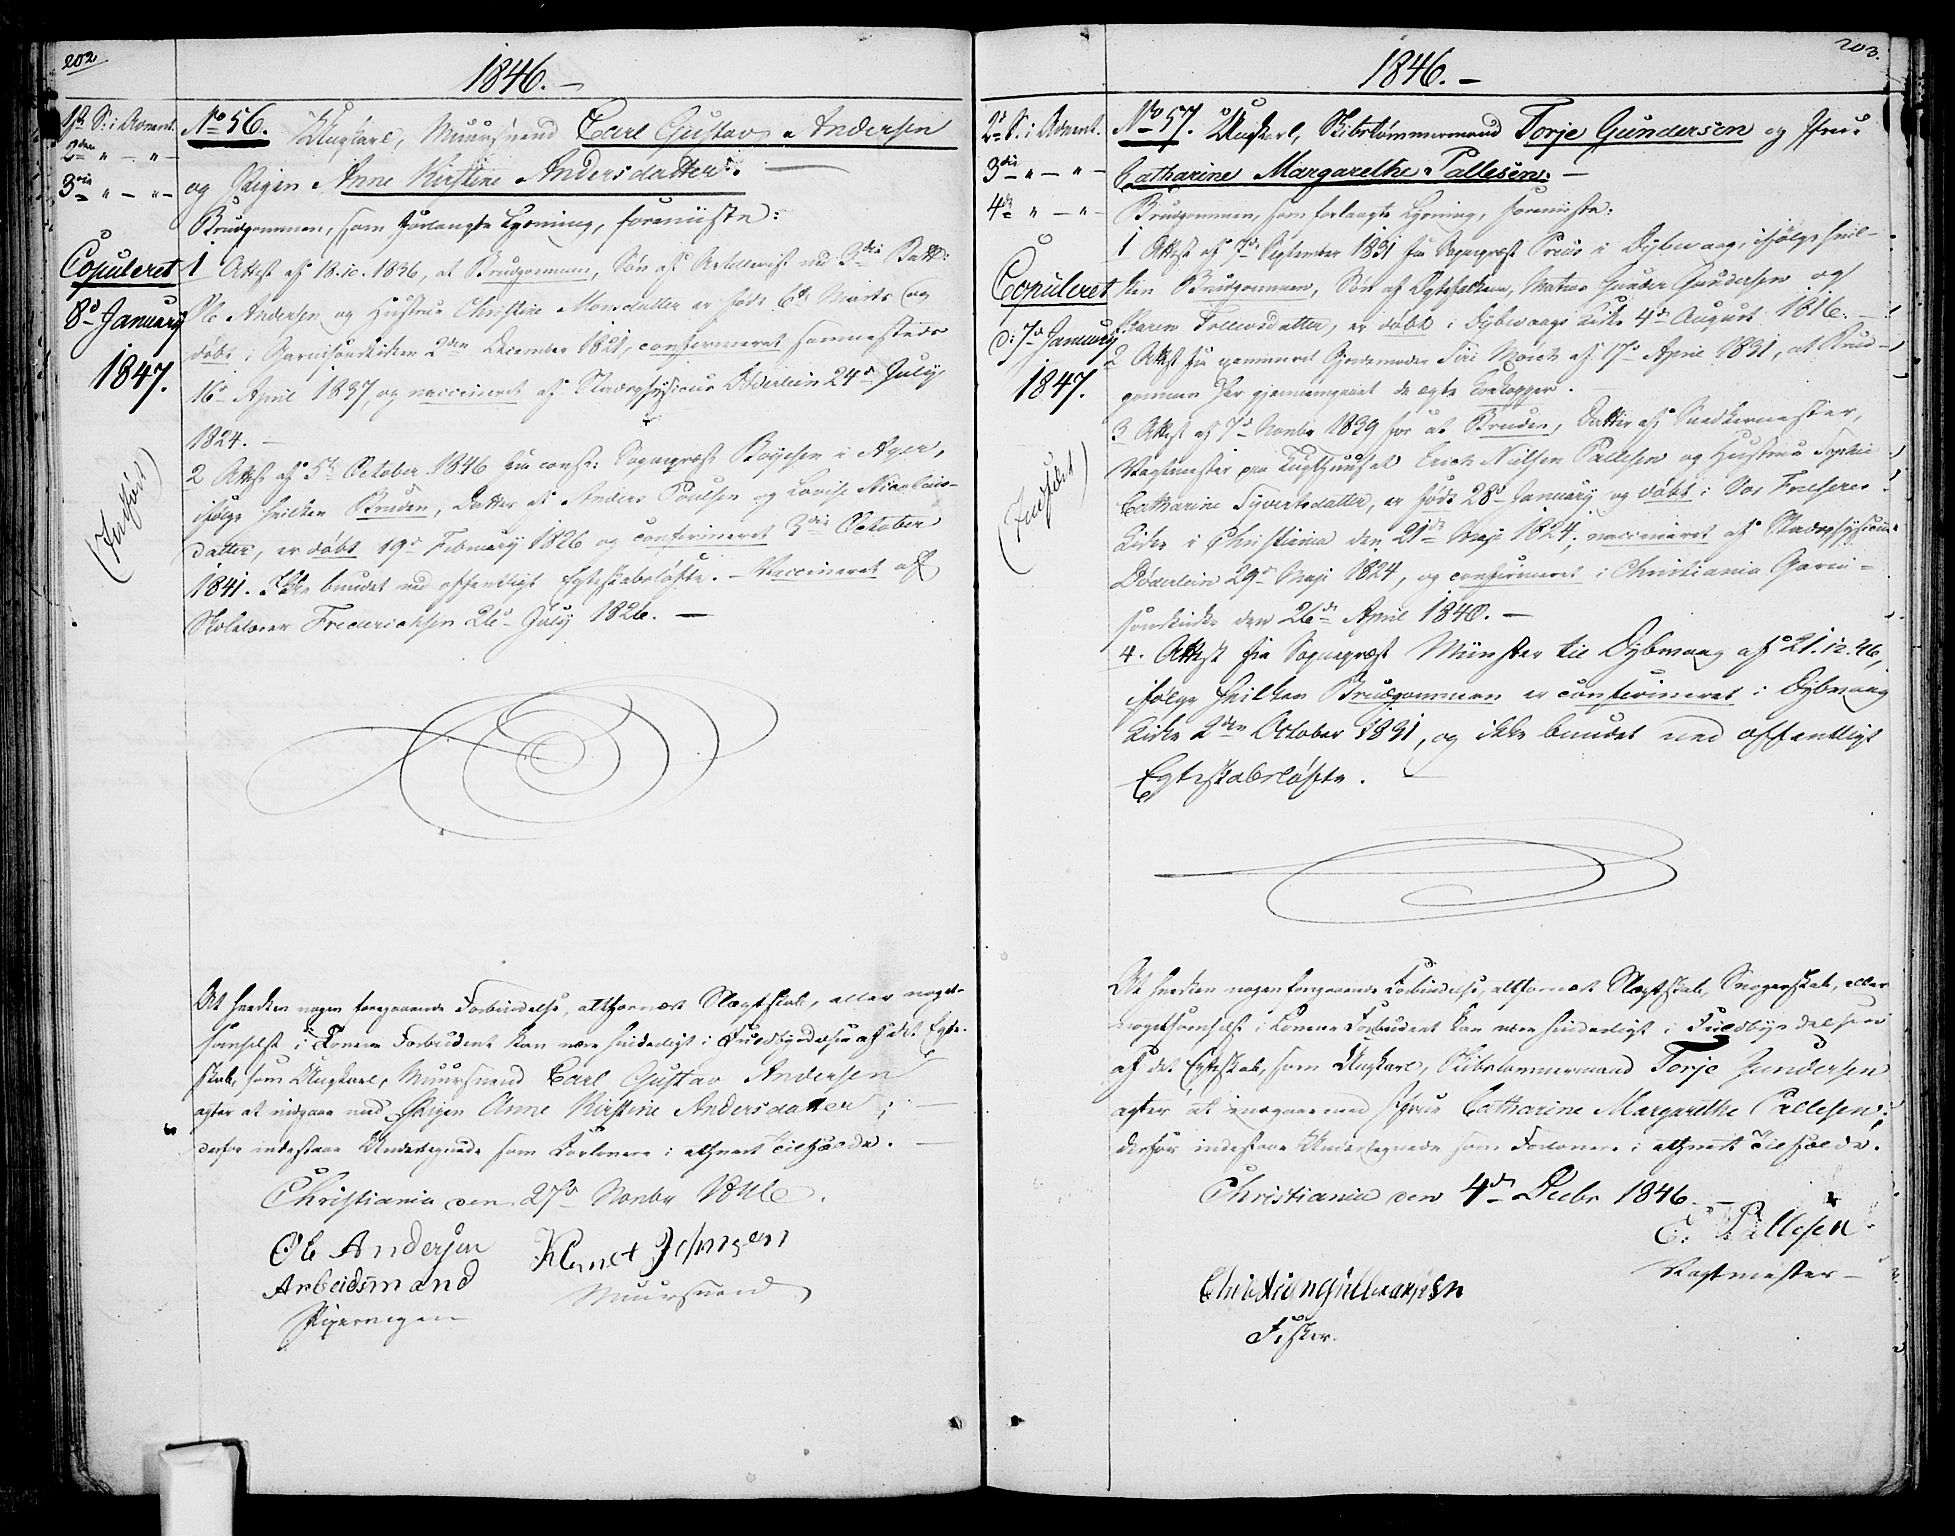 202
1846. –
1ste S: i Advent.
2den " – " –
3die " – " –
Copuleret
8d January
1847.
(Indført)
No 56. Ungkarl, Muursvend Carl Gustav Andersen
og Pigen Anne Kirstine Andersdatter. –
Brudgommen, som forlangte Lysning, foreviiste:
1 Attest af 18.10.1836, at Brudgommen, Søn af Artillerist ved 3die Batt:
Ole Andersen og Hustrue Christine Monsdatter er født 6te Marts og
døbt i Garnisonskirken 2den December 1821, confirmeret sammesteds
16d April 1837, og vaccineret af Stadsphysicus Døderlein 24d July
1824. –
2 Attest af 5te October 1846 fra const: Sognepræst Boyesen i Ager,
ifølge hvilken Bruden, Datter af Anders Poulsen og Lovise Nicolais-
datter, er døbt 19d February 1826 og confirmeret 3die October
1841. Ikke bundet ved offentligt Egteskabsløfte. – Vaccineret af
Skolelærer Frederichsen 26d July 1826. –
At hverken nogen foregaaende Forbindelse, altfornært Slægtskab, eller noget-
somhelst i Loven Forbudent kan være hinderligt i Fuldbyrdelsen af det Egte-
skab, som Ungkarl, Muursvend Carl Gustav Andersen
agter at indgaae med Pigen Anne Kirstine Andersdatter;
derfor indestaae Undertegnede som Forlovere i ethvert Tilfælde. –
Christiania den 27d Novbr 1846.
Ole Andersen
Arbeidsmand
Pipervigen
Muursvend
203.
1846. –
2d S: i Advent.
3die " – " –
4de " – " –
Copuleret
d: 7d January
1847.
(Indført)
No 57. Ungkarl, Skibstømmermand Torje Gundersen og Pige
Catharine Margarethe Pallesen. –
Brudgommen, som forlangte Lysning, foreviiste:
1 Attest af 7d September 1831 fra Sognepræst Preus i Dybvaag, ifølge hvil-
ken Brudgommen, Søn af Egtefolkene, Matros Gunder Gundersen og
Karen Tollevsdatter, er døbt i Dybvaags Kirke 4de August 1816. –
2 Attest fra examineret Gjordemoder Siri Mørch af 17d April 1831, at Brud-
gommen har gjennemgaaet de egte Kokopper. –
3 Attest af 7d Novbr 1839 for at Bruden, Datter af Snedkermester,
Vagtmester paa Tugthuuset Erich Nielsen Pallesen og Hustrue Sophie
Catharine Syvertsdatter, er født 28d January og døbt i Vor Frelseres
Kirke i Christiania den 21de Maji 1824; vaccineret af Stadsphysicus
Døderlein 29d Maji 1824, og confirmeret i Christiania Garni-
sonskirke den 26de April 1840. –
4. Attest fra Sognepræst Münster til Dybvaag af 21.12.46,
ifølge hvilken Brudgommen er confirmeret i Dybvaag
Kirke 2den October 1831, og ikke bundet ved offentligt
Egteskabsløfte. –
At hverken nogen foregaaende Forbindelse, altfornært Slægtskab, Svogerskab, eller
nogetsomhelst i Loven Forbudent kan være hinderligt i Fuldbyrdelsen
af det Egteskab, som Ungkarl, Skibstømmermand Torje Gundersen
agter at indgaae med Pige Catharine Margarethe Pallesen;
derfor indestaae Undertegnede som Forlovere i ethvert Tilfælde.
Christiania den 4de Decbr 1846. –
E. Pallesen
Vagtmester –
Fisker.